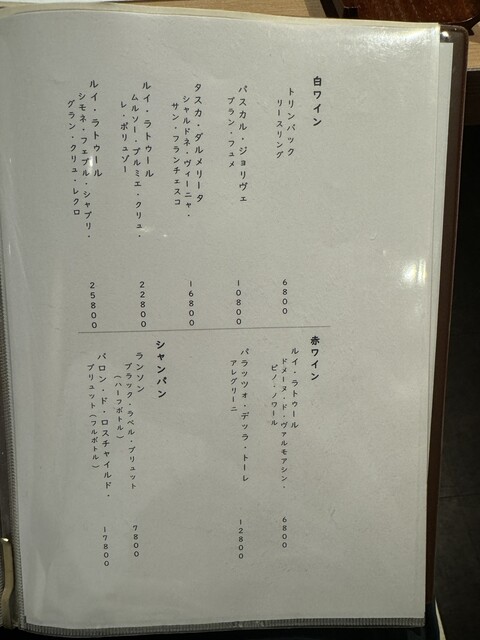 白ワイン
トリンバック
リースリング
6800
パスカル・ジョリヴェ
ブラン・フュメ
10800
タスカ・ダルメリータ
シャルドネ・ヴィーニャ・
サン・フランチェスコ
16800
ルイ・ラトゥール
ムルソー・プルミエ・クリュ・
レ・ポリュゾー
22800
ルイ・ラトゥール
シモネ・フェブル・シャブリ・
グラン・クリュ・レクロ
25800
赤ワイン
ルイ・ラトゥール
ドメーヌ・ド・ヴァルモアシン・
ピノ・ノワール
6800
パラッツォ・デッラ・トーレ
アレグリーニ
12800
シャンパン
ランソン
ブラック・ラベル・ブリュット
(ハーフボトル)
7800
バロン・ド・ロスチャイルド・
ブリュット(フルボトル)
17800